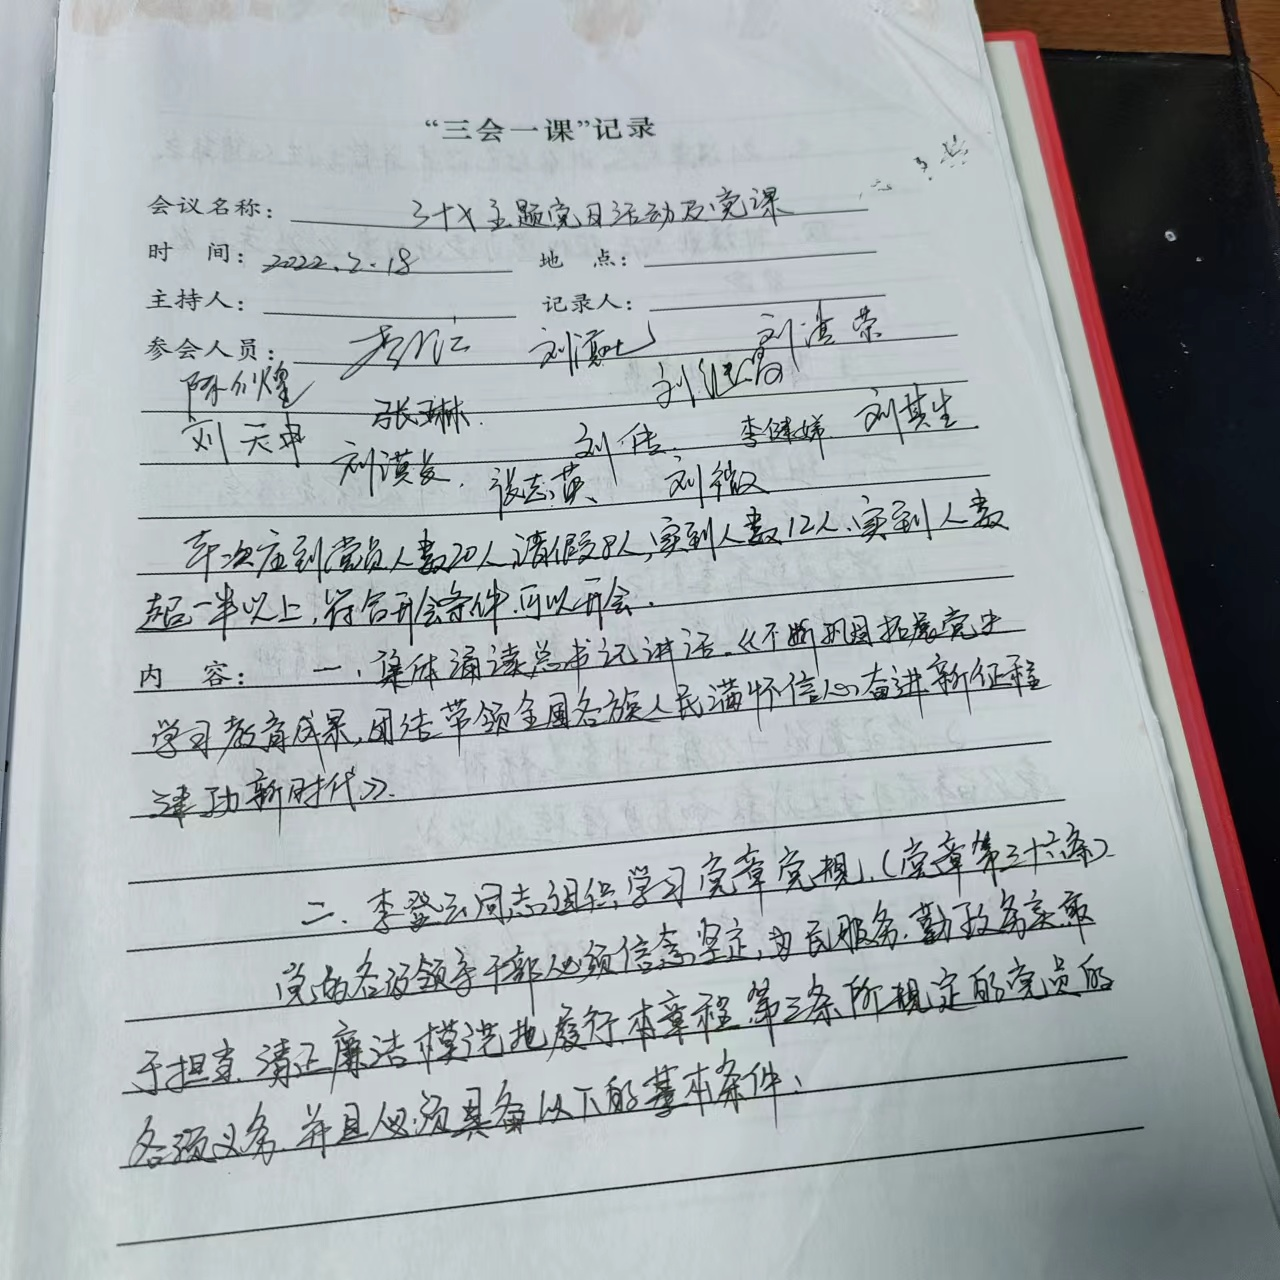 “三会一课”记录
会议名称: 3+X主题党日活动及党课
时 间: 2022.2.18 地 点:
主持人: 记录人:
参会人员: 刘汉荣
刘继富
刘天中 张琳.
刘汉发. 张志英 刘伟. 刘微 李健娣. 刘其生
本次应到党员人数20人,请假8人,实到人数12人.实到人数
超一半以上,符合开会条件.可以开会.
内 容: 一、集体诵读总书记讲话.《不断巩固拓展党史
学习教育成果,团结带领全国各族人民满怀信心奋进新征程
建功新时代》.
二、李登云同志组织学习党章党规.(党章第三十六条).
党的各级领导干部必须信念坚定,为民服务.勤政务实.敢
于担当.清正廉洁.模范地履行本章程第三条所规定的党员的
各项义务.并且必须具备以下的基本条件、